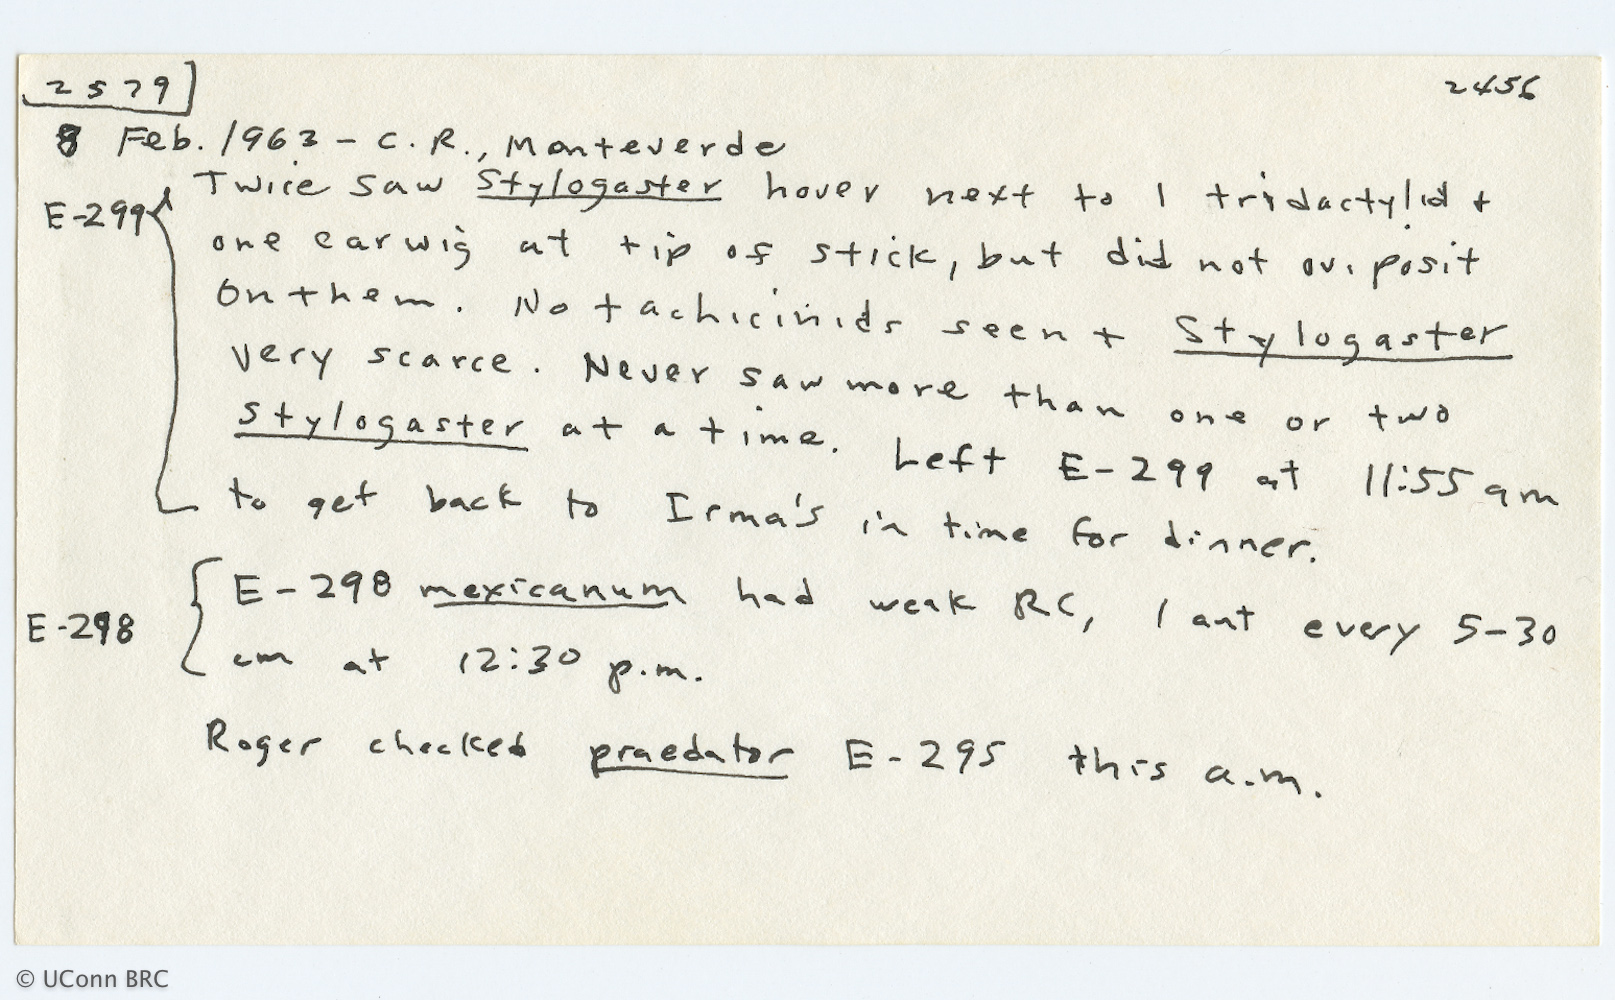 2579
2456
8 Feb. 1963 - C.R., Monteverde
E-299
Twice saw Stylogaster hover next to 1 tridactylid +
one earwig at tip of stick, but did not oviposit
on them. No tachicinids seen + Stylogaster
very scarce. Never saw more than one or two
Stylogaster at a time. Left E-299 at 11:55 am
to get back to Irma's in time for dinner.
E-298
E-298 mexicanum had weak RC, 1 ant every 5-30
cm at 12:30 p.m.
Roger checked praedator E-295 this a.m.
© UConn BRC